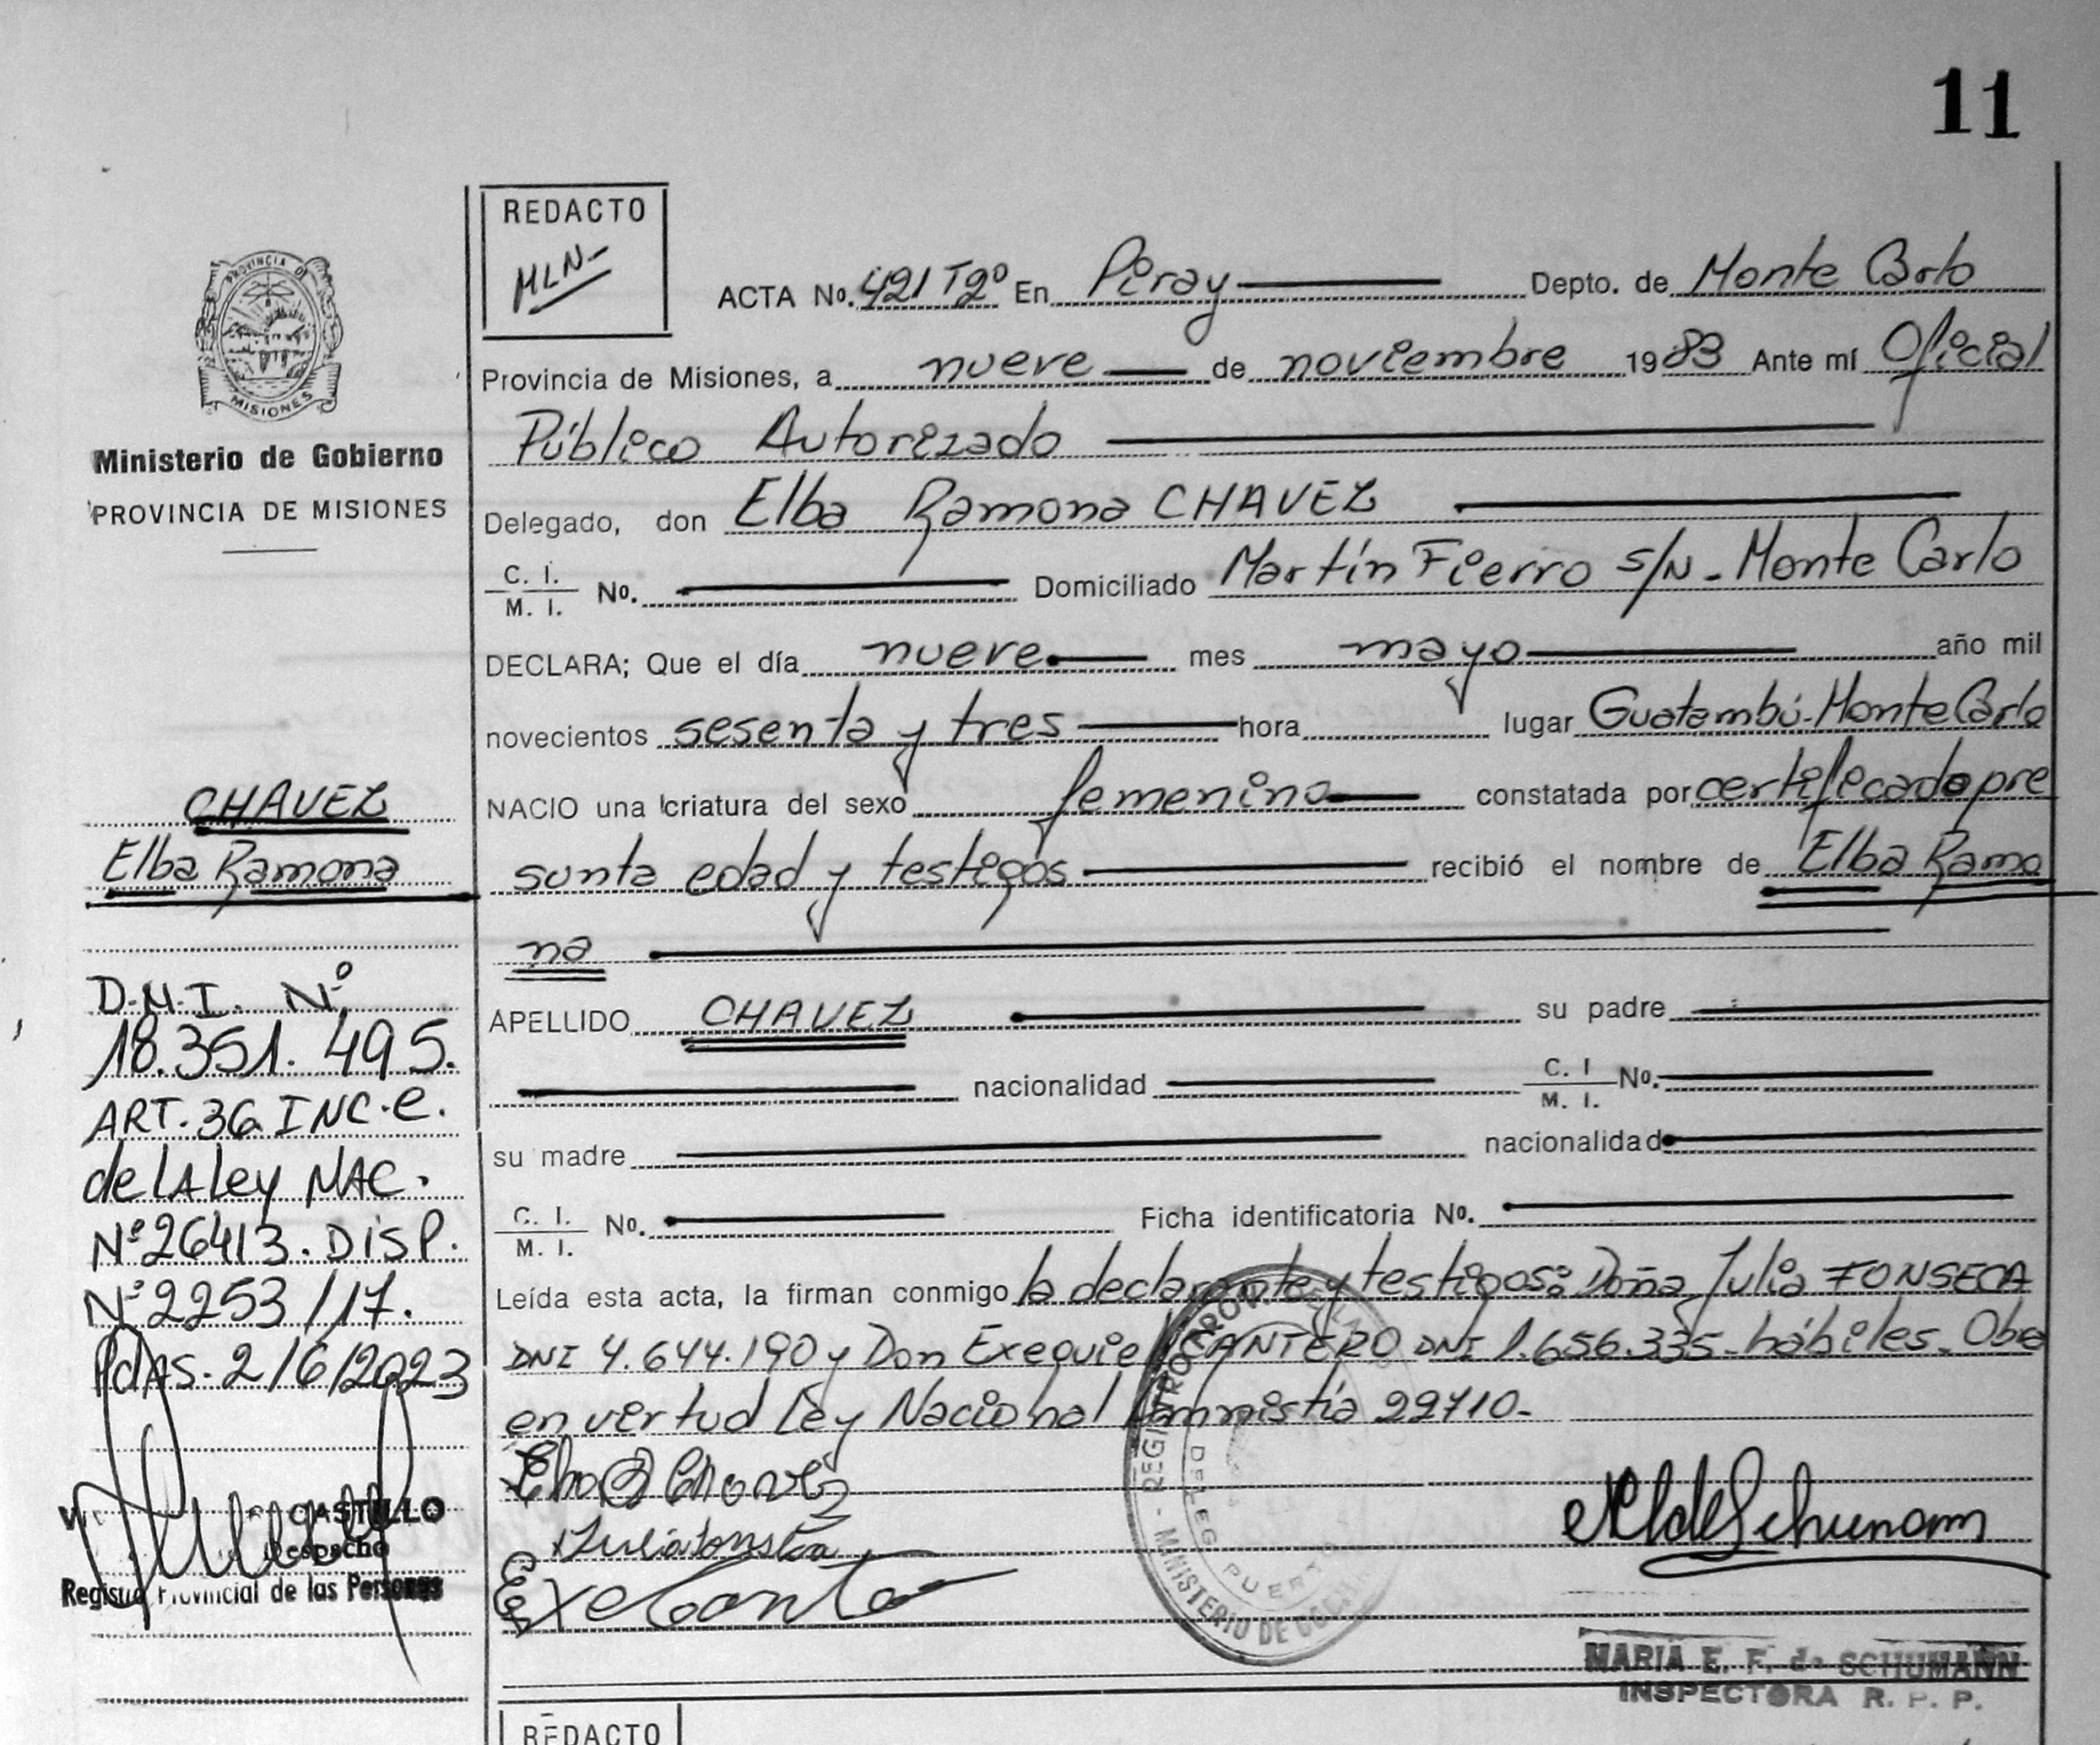 11
REDACTO
MLN-
PROVINCIA D
MISIONES
Ministerio de Gobierno
PROVINCIA DE MISIONES
ACTA No. 421 Tº2º En Piray Depto. de Monte Carlo
Provincia de Misiones, a nueve de noviembre 1983 Ante mí Oficial
Público Autorizado
Delegado, don Elba Ramona CHAVEZ
C. I.
M. I. No. Domiciliado Martín Fierro s/N - Monte Carlo
DECLARA; Que el día nueve mes mayo año mil
novecientos sesenta y tres hora lugar Guatambú-Monte Carlo
NACIO una criatura del sexo femenino constatada por certificado pre
sunta edad y testigos recibió el nombre de Elba Ramo
na
APELLIDO CHAVEZ su padre
nacionalidad C. I
M. I. No.
su madre nacionalidad
C. I.
M. I. No. Ficha identificatoria No.
Leída esta acta, la firman conmigo la declarante y testigos: Doña Julia FONSECA
DNI 4.644.190 y Don Exequiel CANTERO DNI 1.656.335 - hábiles. Obra
en virtud Ley Nacional Amnistía 22710-
CHAVEZ
Elba Ramona
D.M.I. Nº
18.351.495.
ART. 36 INC. e.
de LA Ley NAC.
Nº 26413. DISP.
Nº 2253/17.
PdAS. 2/6/2023
CASTILLO
Despacho
Registro Provincial de las Personas
MINISTERIO DE
PUERTO
MARIA E. F. de SCHUMANN
INSPECTORA R. P. P.
REDACTO